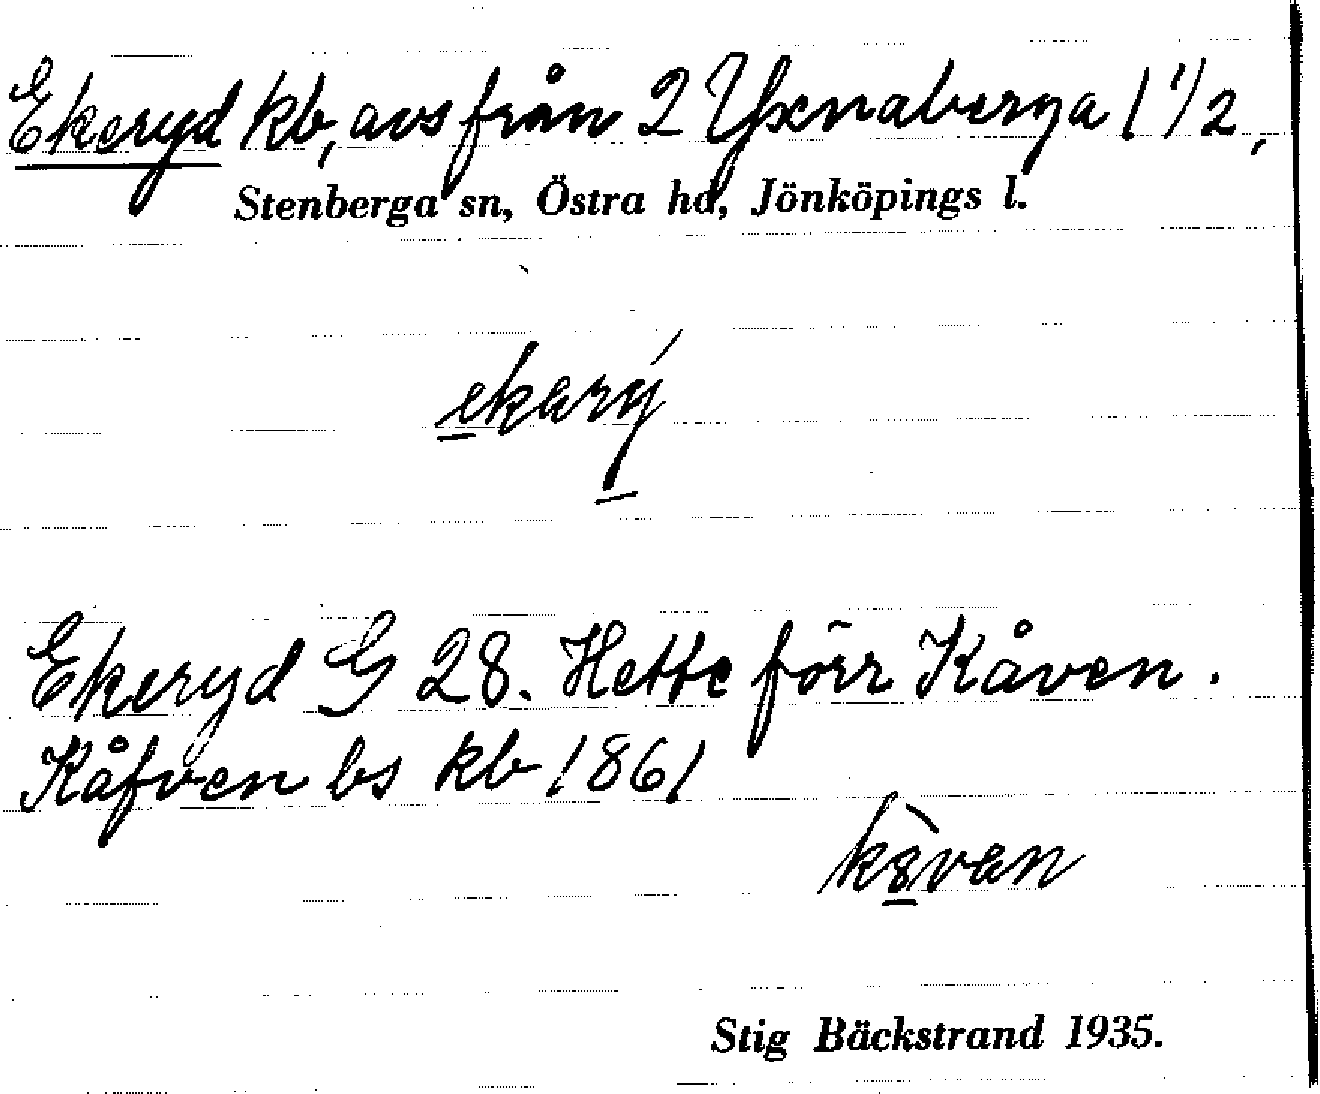 Ekeryd kb, avs från 2 Yxnaberga 1 1/2,
Stenberga sn, Östra hd, Jönköpings l.
ekarý
Ekeryd G 28. Hette förr Kåven.
Kåfven bs kb 1861
kòvan
Stig Bäckstrand 1935.